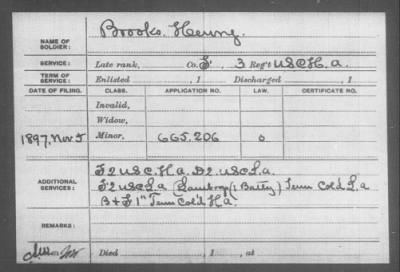 NAME OF SOLDIER: Brooks, Henry.
SERVICE: Late rank, Co. F, 3 Reg't U.S.C.H.A.
TERM OF SERVICE: Enlisted , 1 Discharged , 1
DATE OF FILING. CLASS. APPLICATION NO. LAW. CERTIFICATE NO.
Invalid,
Widow,
1897, Nov 5 Minor, 665.206 o
ADDITIONAL SERVICES: F 2 U.S.C.H.a. D 2 U.S.C.L.a.
F 2 U.S.C.L.a (1 Batty) Tenn Col'd L.a
B + F 1" Tenn Col'd H.a.
REMARKS:
Died , 1 , at